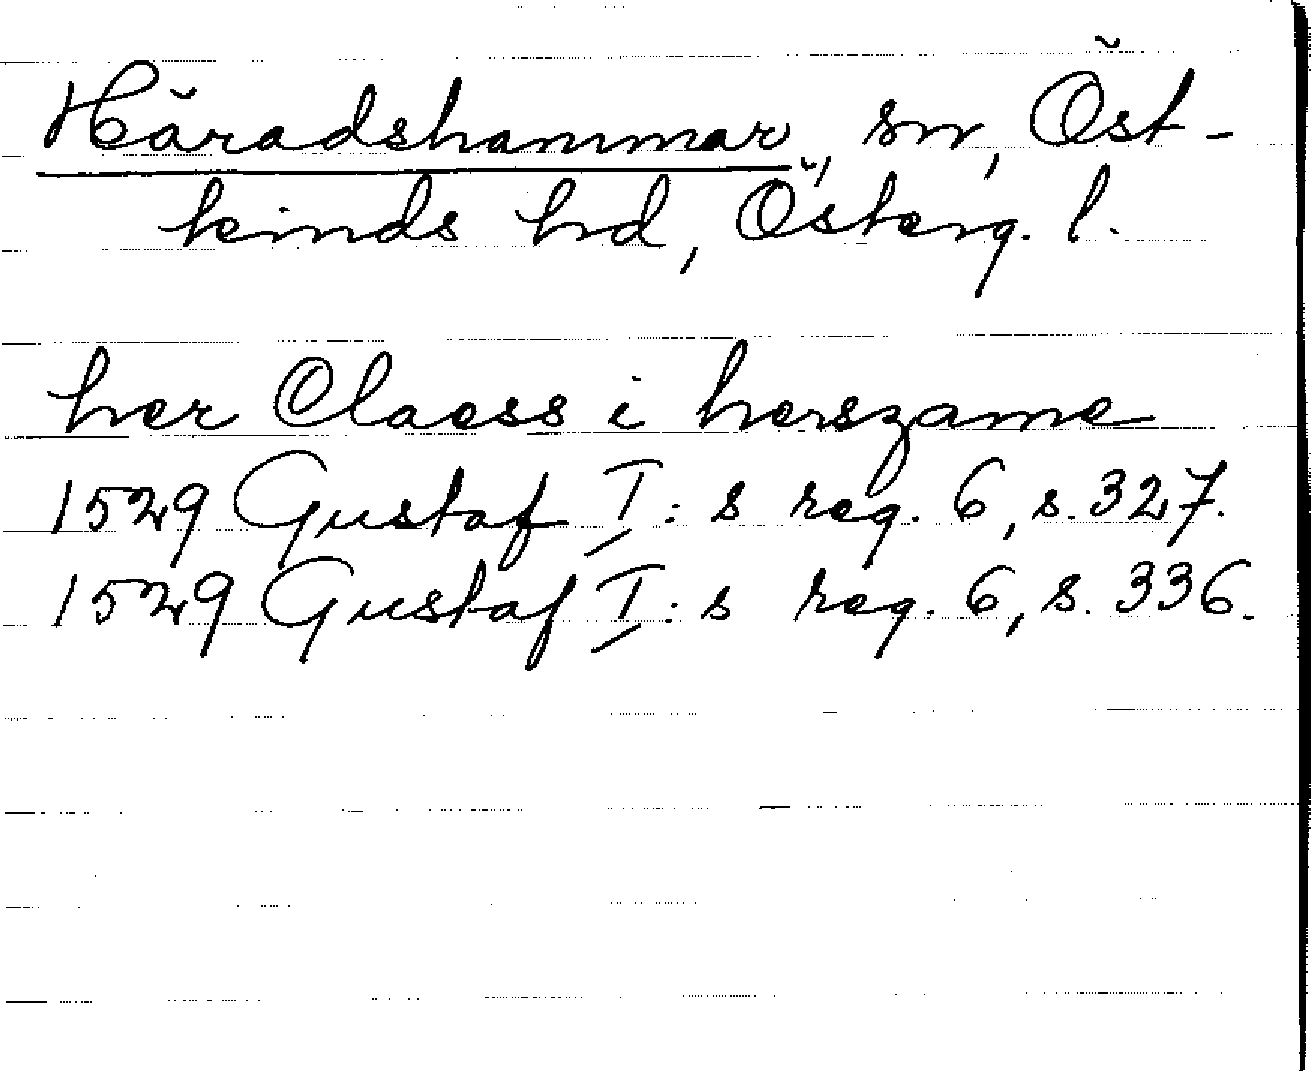 Häradshammar, sn, Öst-
kinds hd, Österg. l.
her Claess i herszame
1529 Gustaf I:s reg. 6, s. 327.
1529 Gustaf I:s reg. 6, s. 336.